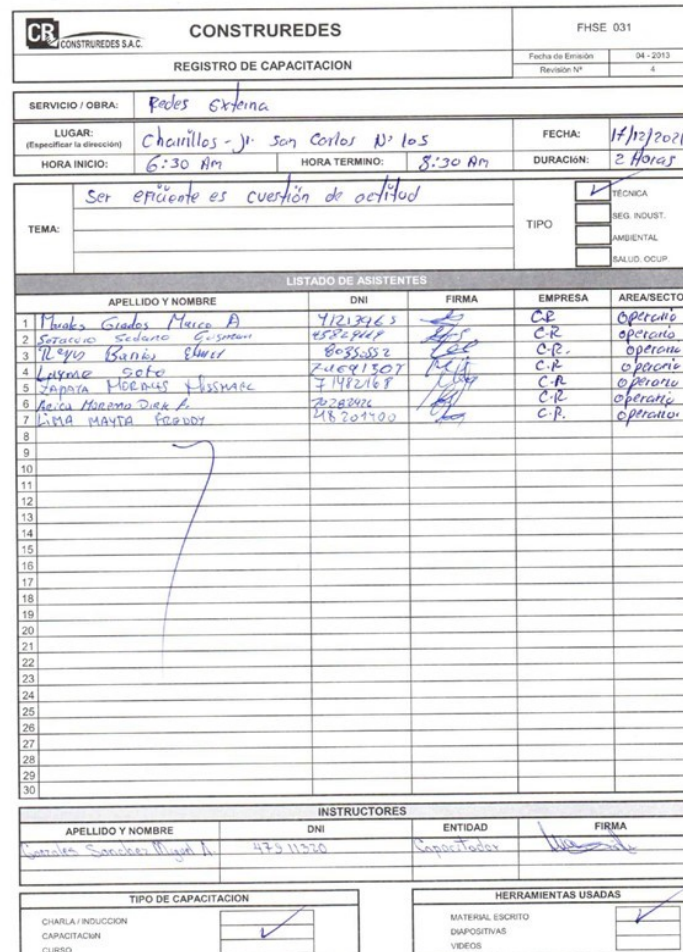 CR CONSTRUREDES S.A.C.
CONSTRUREDES
FHSE 031
REGISTRO DE CAPACITACION
Fecha de Emisión 04 - 2013
Revisión Nº 4
SERVICIO / OBRA: Redes Externa
LUGAR: (Especificar la dirección) Chorrillos - Jr. San Carlos Nº 105
FECHA: 17/12/2021
HORA INICIO: 6:30 Am HORA TERMINO: 8:30 Am DURACIÓN: 2 Horas
TEMA: Ser eficiente es cuestión de actitud
TIPO
TÉCNICA
SEG. INDUST.
AMBIENTAL
SALUD. OCUP.
LISTADO DE ASISTENTES
APELLIDO Y NOMBRE DNI FIRMA EMPRESA AREA/SECTO
1 Grados Marco A CR operario
2 Sedano C.R operario
3 Reyes Barrios 80350552 C.R. operario
4 Layme Soto C.R operario
5 ZAPATA MORALES 71482168 C.R operario
6 Moreno Dirk C.R operario
7 LIMA MAYTA FREDDY 48201700 C.R. operario
8
9
10
11
12
13
14
15
16
17
18
19
20
21
22
23
24
25
26
27
28
29
30
INSTRUCTORES
APELLIDO Y NOMBRE DNI ENTIDAD FIRMA
Gonzales Sanchez Miguel A. 47911320 Capacitador
TIPO DE CAPACITACION
CHARLA / INDUCCION
CAPACITACIÓN
CURSO
HERRAMIENTAS USADAS
MATERIAL ESCRITO
DIAPOSITIVAS
VIDEOS